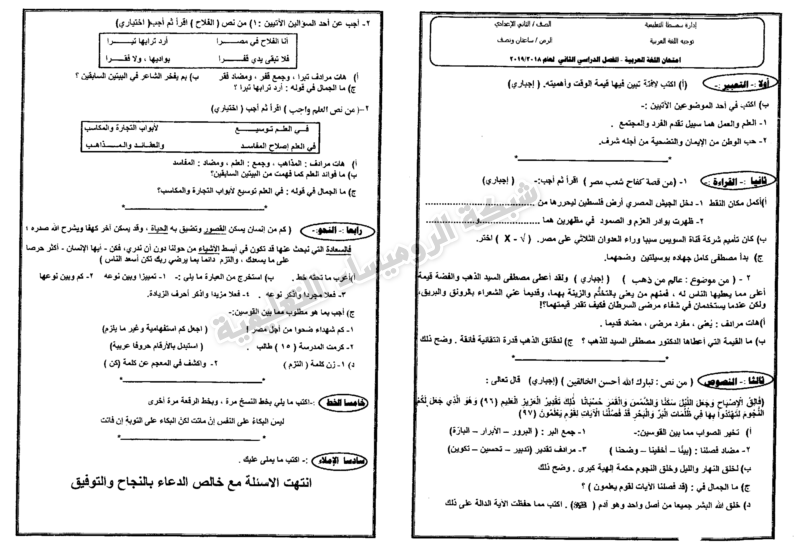 إدارة سمسطا التعليمية
الصف / الثاني الإعدادي
توجيه اللغة العربية
الزمن / ساعتان ونصف
امتحان اللغة العربية - الفصل الدراسي الثاني لعام ٢٠١٨/٢٠١٩
أولا :- التعبير :- (أ) اكتب لافتة تبين فيها قيمة الوقت وأهميته. ( إجباري)
ب) اكتب في أحد الموضوعين الآتيين :-
١- العلم والعمل هما سبيل تقدم الفرد والمجتمع .
٢- حب الوطن من الإيمان والتضحية من أجله شرف.
ثانيا :- القراءة :- ١- (من قصة كفاح شعب مصر ) اقرأ ثم أجب:- ( إجباري)
أ)أكمل مكان النقط ١- دخل الجيش المصري أرض فلسطين ليحررها من
٢- ظهرت بوادر العزم و الصمود في مظهرين هما و
ب) كان تأميم شركة قناة السويس سببا وراء العدوان الثلاثي على مصر. ( √ - X ) اختر.
ج) بدأ مصطفى كامل جهاده بوسيلتين وضحهما.
٢ - ( من موضوع : عالم من ذهب ) ( إجباري) ولقد أعطى مصطفى السيد الذهب والفضة قيمة
أعلى مما يعطيها الناس له ، فمنهم من يعنى بالتختم والزينة بهما، وقديما عني الشعراء بالرونق والبريق،
ولكن عندما يستخدمان في شفاء مرضى السرطان فكيف تقدر قيمتهما؟!
أ)هات مرادف : يعنى ، مفرد مرضى ، مضاد قديما .
ب) ما القيمة التي أعطاها الدكتور مصطفى السيد للذهب ؟ ج) لدقائق الذهب قدرة انتقائية فائقة . وضح ذلك
ثالثا :- النصوص ( من نص : تبارك الله أحسن الخالقين ) (إجباري) قال تعالى :
(فَالِقُ الْإِصْبَاحِ وَجَعَلَ اللَّيْلَ سَكَنًا وَالشَّمْسَ وَالْقَمَرَ حُسْبَانًا ذَلِكَ تَقْدِيرُ الْعَزِيزِ الْعَلِيمِ (٩٦) وَهُوَ الَّذِي جَعَلَ لَكُمُ
النُّجُومَ لِتَهْتَدُوا بِهَا فِي ظُلُمَاتِ الْبَرِّ وَالْبَحْرِ قَدْ فَصَّلْنَا الْآيَاتِ لِقَوْمٍ يَعْلَمُونَ (٩٧)
أ) تخير الصواب مما بين القوسين:- ١- جمع البر : ( البرور – الأبرار - البازة)
٢- مضاد فصلنا : (بينًا – أخفينا – وضحنا ) ٣- مرادف تقدير (تدبير – تحسين – تكوين)
ب) لخلق النهار والليل وخلق النجوم حكمة إلهية كبرى . وضح ذلك
ج) ما الجمال في : ( قد فصلنا الآيات لقوم يعلمون ) ؟
د) خلق الله البشر جميعا من أصل واحد وهو آدم ( ) . اكتب مما حفظت الآية الدالة على ذلك
٢- أجب عن أحد السؤالين الآتيين :١) من نص ( الفلاح ) اقرأ ثم أجب( اختياري)
أنا الفلاح في مصرا أرد ترابها تبرا
فلا تبقى يدي قفرا بواديها، ولا فقرا
أ) هات مرادف تبرا ، وجمع قفر ، ومضاد فقر ب) بم يفخر الشاعر في البيتين السابقين؟
ج) ما الجمال في قوله : أرد ترابها تبرا ؟
٢- (من نص العلم واجب ) اقرأ ثم أجب ( اختياري)
في العلم توسيع لأبواب التجارة والمكاسب
في العلم إصلاح المفاسد والعقائد والمذاهب
أ) هات مرادف : المذاهب ، وجمع : العلم ، ومضاد : المفاسد
ب) ما فوائد العلم كما فهمت من البيتين السابقين؟
ج) ما الجمال في قوله : في العلم توسيع لأبواب التجارة والمكاسب؟
رابعا :- النحو:- ( كم من إنسان يسكن القصور وتضيق به الحياة ، وقد يسكن آخر كهفا ويشرح الله صدره ؛
فالسعادة التي نبحث عنها قد تكون في أبسط الأشياء من حولنا دون أن ندري، فكن - أيها الإنسان - أكثر حرصا
على ما يسعدك ، والتزم دائما بما يرضي ربك تكن أسعد الناس )
أ)أعرب ما تحته خط . ب) استخرج من العبارة ما يلي :- ١- تمييزا وبين نوعه ٢- كم وبين نوعها
٣- فعلا مجردا واذكر نوعه . ٤- فعلا مزيدا واذكر أحرف الزيادة.
ج) أجب بما هو مطلوب مما بين القوسين:-
١- كم شهداء ضحوا من أجل مصر ! ( اجعل كم استفهامية وغير ما يلزم)
٢- كرمت المدرسة ( ١٥ ) طالب . ( استبدل بالأرقام حروفا عربية)
د) ١- زن كلمة ( التزم ) ٢- واكشف في المعجم عن كلمة (كن )
خامسا الخط :-اكتب ما يلي بخط النسخ مرة ، وبخط الرقعة مرة أخرى
ليس البكاء على النفس إنْ ماتت لكن البكاء على التوبة إن فاتت
سادسا الإملاء :- اكتب ما يملى عليك .
انتهت الاسئلة مع خالص الدعاء بالنجاح والتوفيق
شبكة الروميساء التعليمية